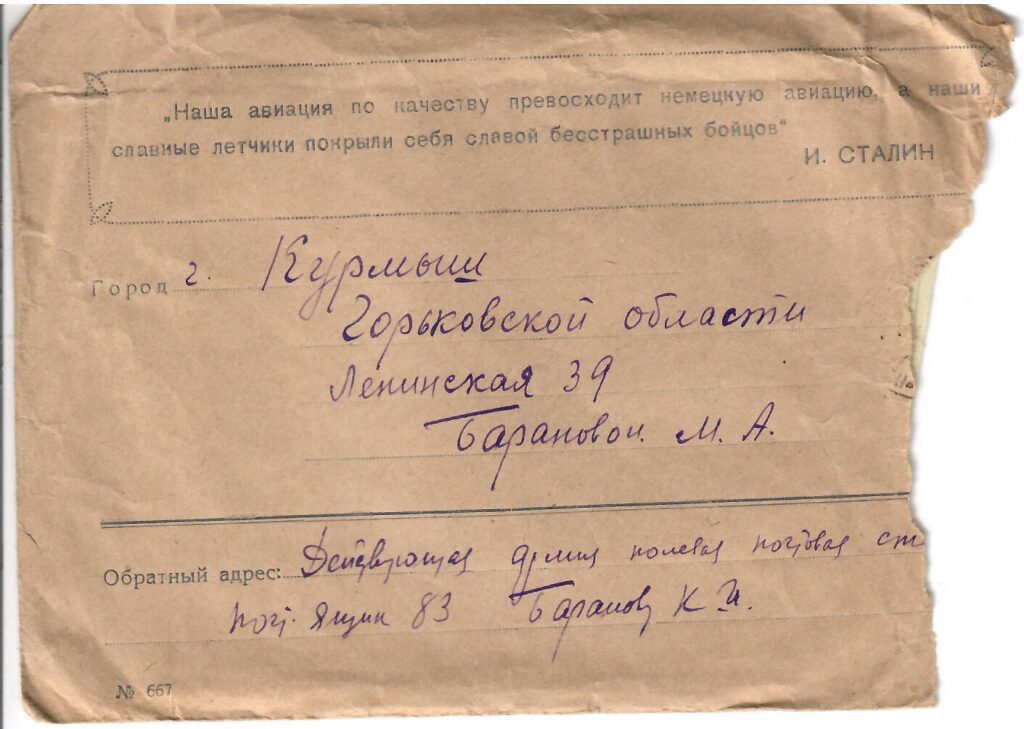 „Наша авиация по качеству превосходит немецкую авиацию, а наши
славные летчики покрыли себя славой бесстрашных бойцов“
И. СТАЛИН
Город г. Курмыш
Горьковской области
Ленинская 39
Барановой М. А.
Обратный адрес: Действующая армия полевая почтовая ст
почт. Ящик 83 Баранов К И.
№ 667